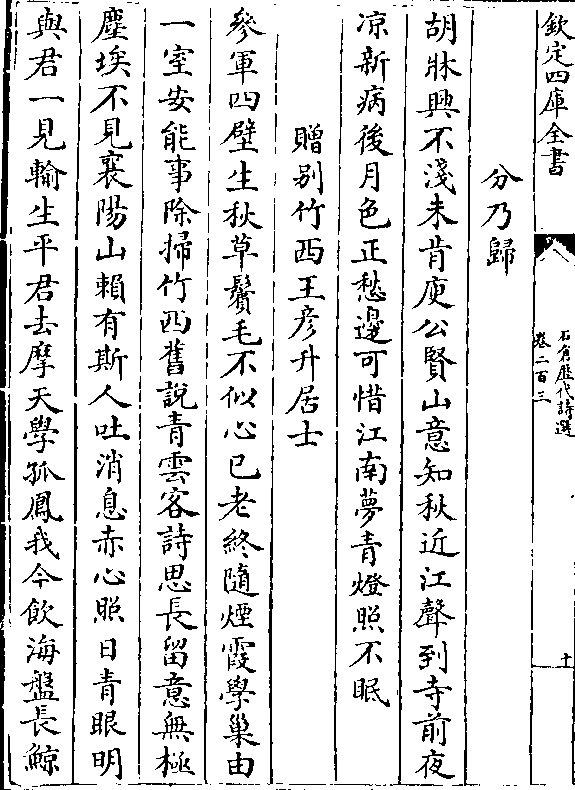 欽定四庫全書
石倉歷代詩選
卷二百三
十
分乃歸
胡牀興不淺未肯庾公賢山意知秋近江聲到寺前夜
凉新病後月色正愁邊可惜江南夢青燈照不眠
贈别竹西王彦升居士
參軍四壁生秋草鬢毛不似心已老終隨煙霞學巢由
一室安能事除掃竹西舊說青雲客詩思長留意無極
塵埃不見襄陽山賴有斯人吐消息赤心照日青眼明
與君一見輸生平君去摩天學孤鳳我今飲海盤長鯨